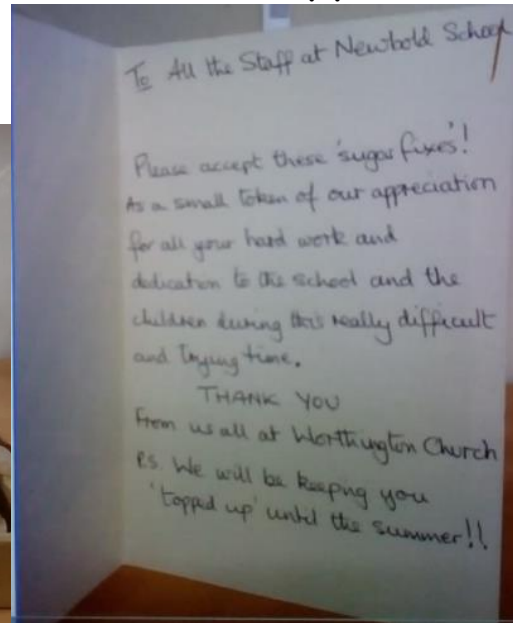 To All the Staff at Newbold School
Please accept these 'sugar fixes'!
As a small token of our appreciation
for all your hard work and
dedication to the school and the
children during this really difficult
and trying time.
THANK YOU
From us all at Worthington Church
P.S. We will be keeping you
'topped up' until the summer!!